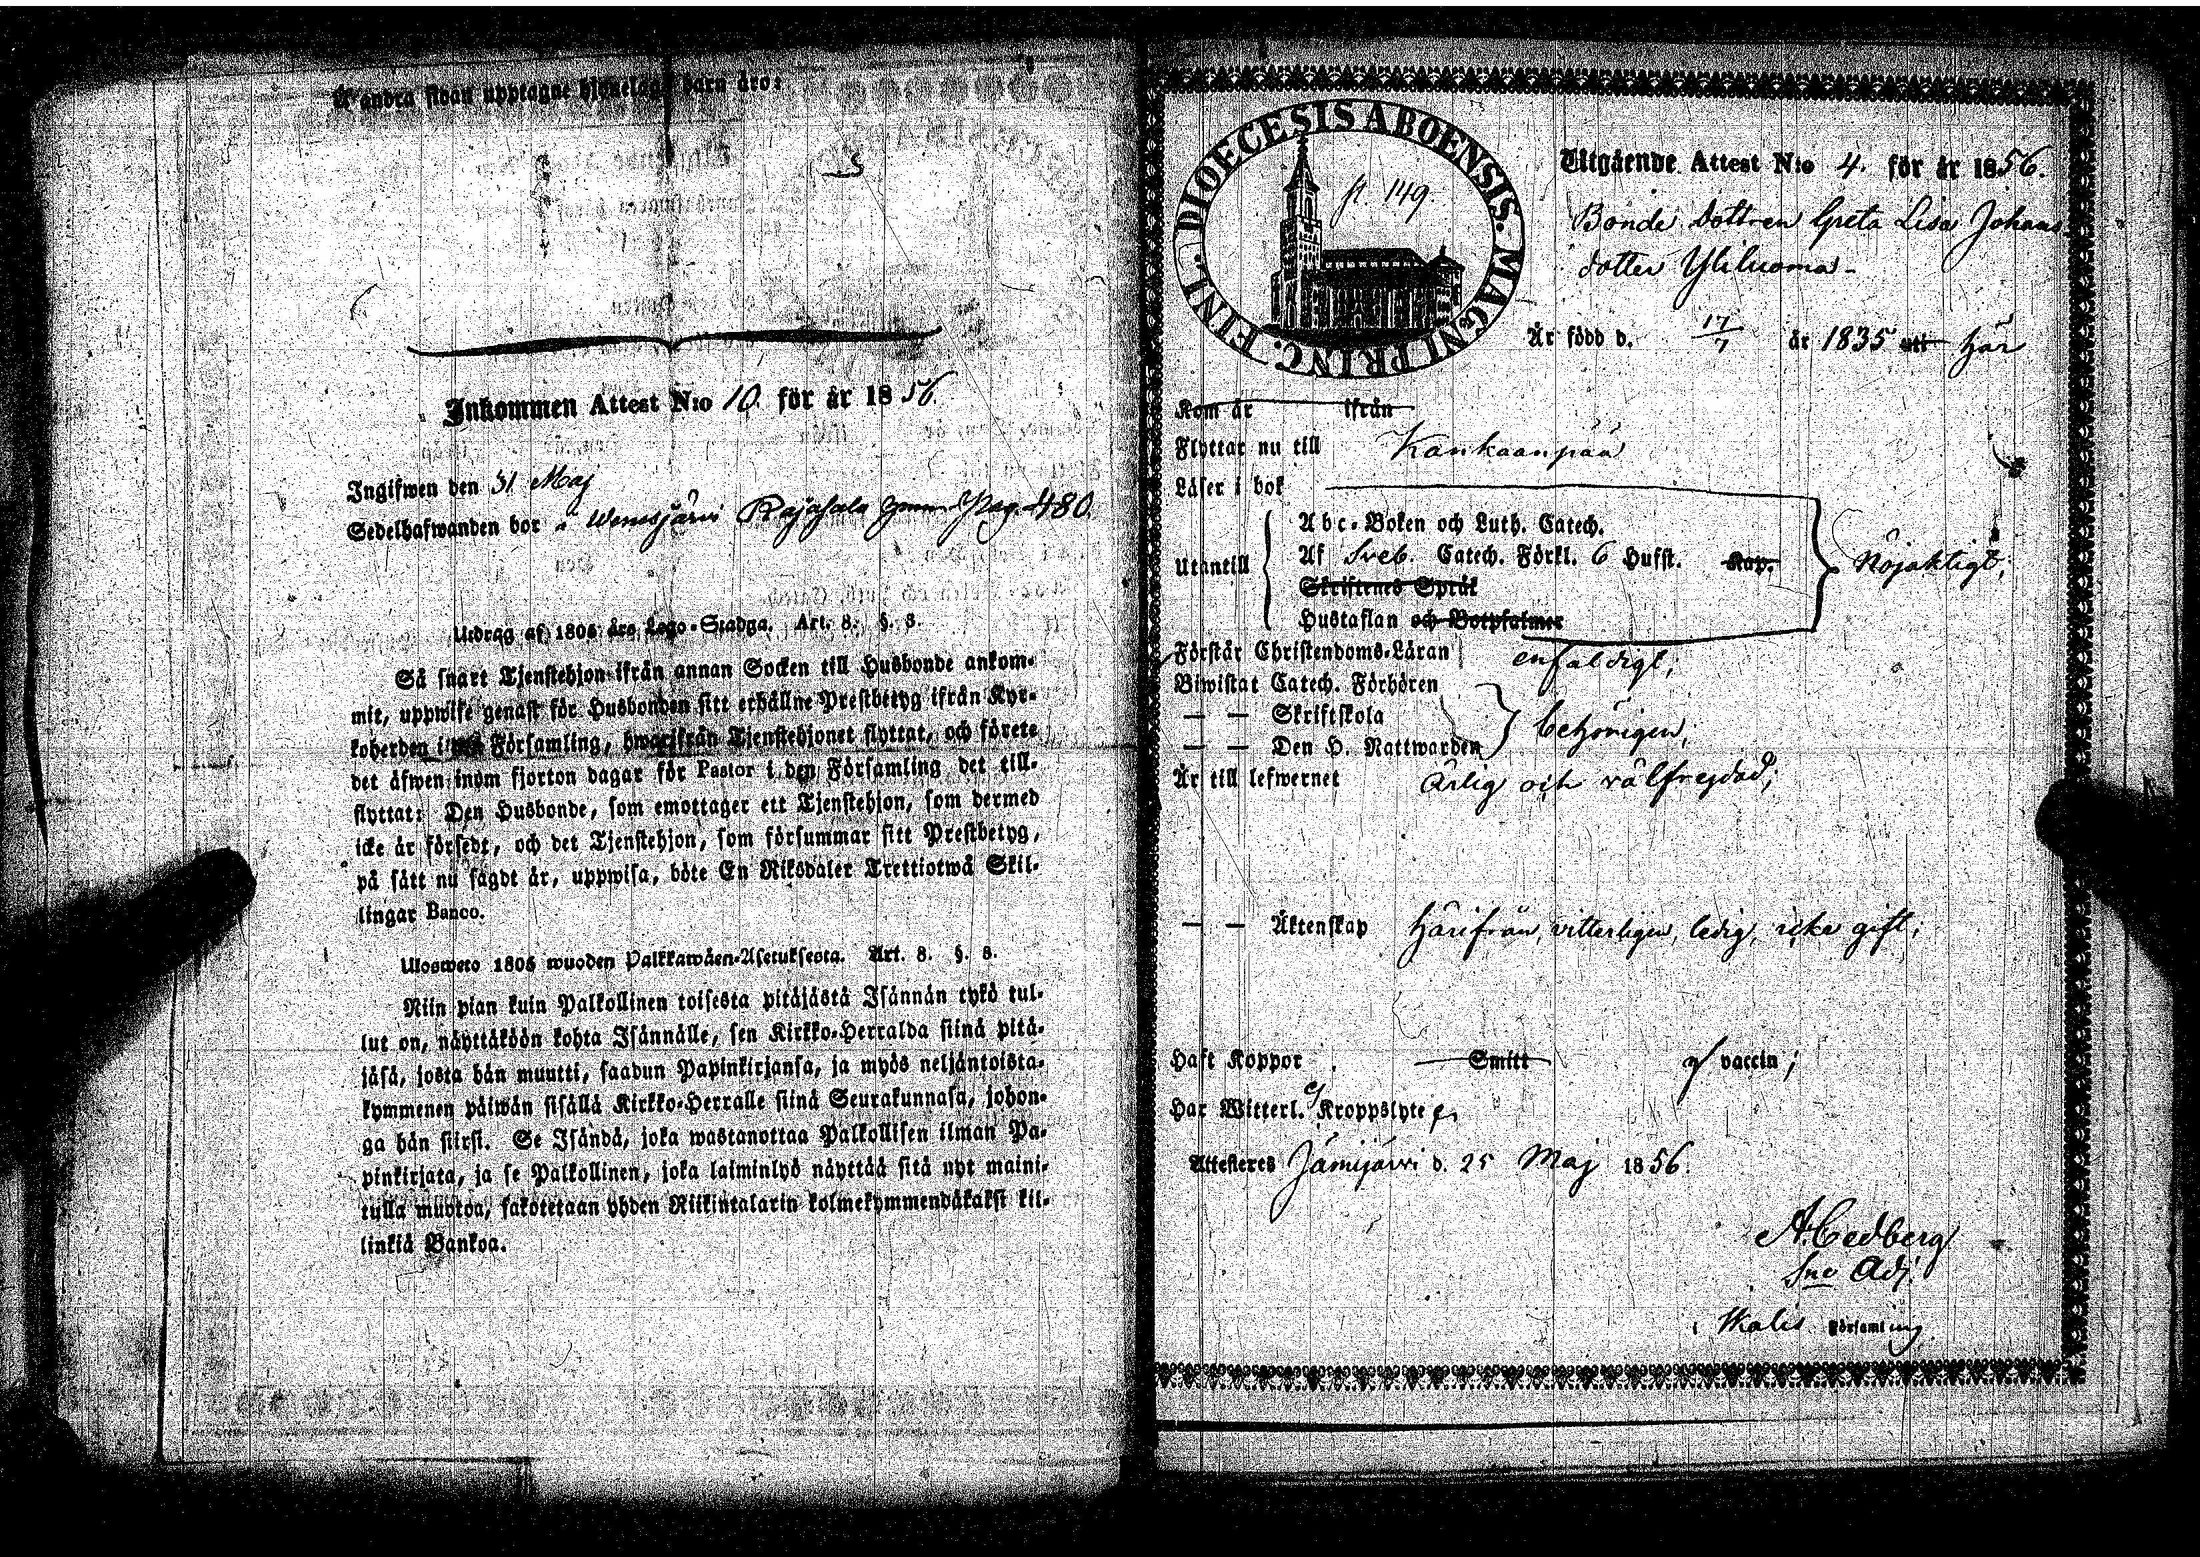 å andra sidan upptagne hjonelags barn äro:
Inkommen Attest N:o 10. för år 1856
Ingifwen den 31 Maj
Sedelhafwanden bor i Wenesjärvi Rajasala Pag. 480.
Utdrag af 1805 års Lego-Stadga. Art. 8. §. 8.
Så snart Tjenstehjon ifrån annan Socken till Husbonde ankom-
mit, uppwise genast för Husbonden sitt erhållne Prestbetyg ifrån Kyr-
koherden i Församling, hwarifrån Tjenstehjonet flyttat, och förete
det äfwen inom fjorton dagar för Pastor i den Församling det till-
flyttat: Den Husbonde, som emottager ett Tjenstehjon, som dermed
icke är försedt, och det Tjenstehjon, som försummar sitt Prestbetyg,
på sätt nu sagdt är, uppwisa, böte En Riksdaler Trettiotwå Skil-
lingar Banco.
Ulosweto 1805 wuoden Palkkawäen-Asetuksesta. Art. 8. §. 8.
Niin pian kuin Palkollinen toisesta pitäjästä Isännän tykö tul-
lut on, näyttäköön kohta Isännälle, sen Kirkko-Herralda siinä pitä-
jäsä, josta hän muutti, saadun Papinkirjansa, ja myös neljäntoista-
kymmenen päiwän sisällä Kirkko-Herralle siinä Seurakunnasa, johon-
ga hän siirsi. Se Isändä, joka wastanottaa Palkollisen ilman Pa-
pinkirjata, ja se Palkollinen, joka laiminlyö näyttää sitä nyt maini-
tulla muotoa, sakotetaan yhden Riikintalarin kolmekymmendäkaksi kil-
linkiä Bankoa.
DIOECESIS ABOENSIS. MAGNI PRINC. FINL.
fl. 149.
Utgående Attest N:o 4. för år 1856.
Bonde dottren Greta Lisa Johans
dotter Yliluoma
Är född d. 17/7 år 1835 att här
Kom år ifrån
Flyttar nu till Kankaanpää
Läser i bok
Utantill
Abc-Boken och Luth. Catech.
Af Sveb. Catech. Förkl. 6 Hufst. Kap.
Skriftenes Språk
Hustaflan och Botpsalmer
Nöjaktigt;
Förstår Christendoms-Läran enfaldigt;
Biwistat Catech. Förhören
— — Skriftskola
— — Den H. Nattwarden
behörigen,
Är till lefwernet ärlig och välfrejdad;
— — Äktenskap härifrån, vitterligen, ledig, icke gift;
Haft Koppor Smitt vaccin;
Har Witterl. Kroppslyte
Attesteres Jämijärvi d. 25 Maj 1856.
A Cedberg
Sac Adj.
i Ikalis Församling